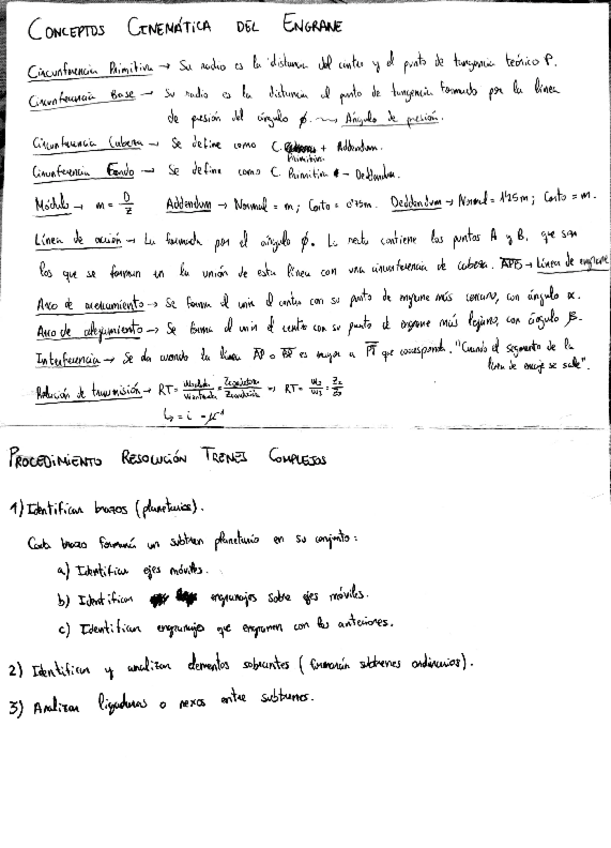 CONCEPTOS CINEMÁTICA DEL ENGRANE
Circunferencia Primitiva → Su radio es la distancia del centro y el punto de tangencia teórico P.
Circunferencia Base → Su radio es la distancia al punto de tangencia formado por la línea
de presión del ángulo ϕ. ⟿ Ángulo de presión.
Circunferencia Cabeza → Se define como C. Primitiva + Addendum.
Circunferencia Fondo → Se define como C. Primitiva - Deddendum.
Módulo → m = D/Z Addendum → Normal = m; Corto = 0'75m. Deddendum → Normal = 1'25m; Corto = m.
Línea de acción → La formada por el ángulo ϕ. La recta contiene los puntos A y B, que son
los que se forman en la unión de esta línea con una circunferencia de cabeza. → Línea de engrane
Arco de acercamiento → Se forma al unir el centro con su punto de engrane más cercano, con ángulo α.
Arco de alejamiento → Se forma al unir el centro con su punto de engrane más lejano, con ángulo β.
Interferencia → Se da cuando la línea AP o BP es mayor a PT que corresponda. "Cuando el segmento de la
línea de encaje se sale".
Relación de transmisión → RT = =
↳ = i = μ⁻¹
PROCEDIMIENTO RESOLUCIÓN TRENES COMPLEJOS
1) Identificar brazos (planetarios).
Cada brazo formará un subtren planetario en su conjunto:
a) Identificar ejes móviles.
b) Identificar engranajes sobre ejes móviles.
c) Identificar engranajes que engranen con los anteriores.
2) Identificar y analizar elementos sobrantes (formarán subtrenes ordinarios).
3) Analizar ligaduras o nexos entre subtrenes.